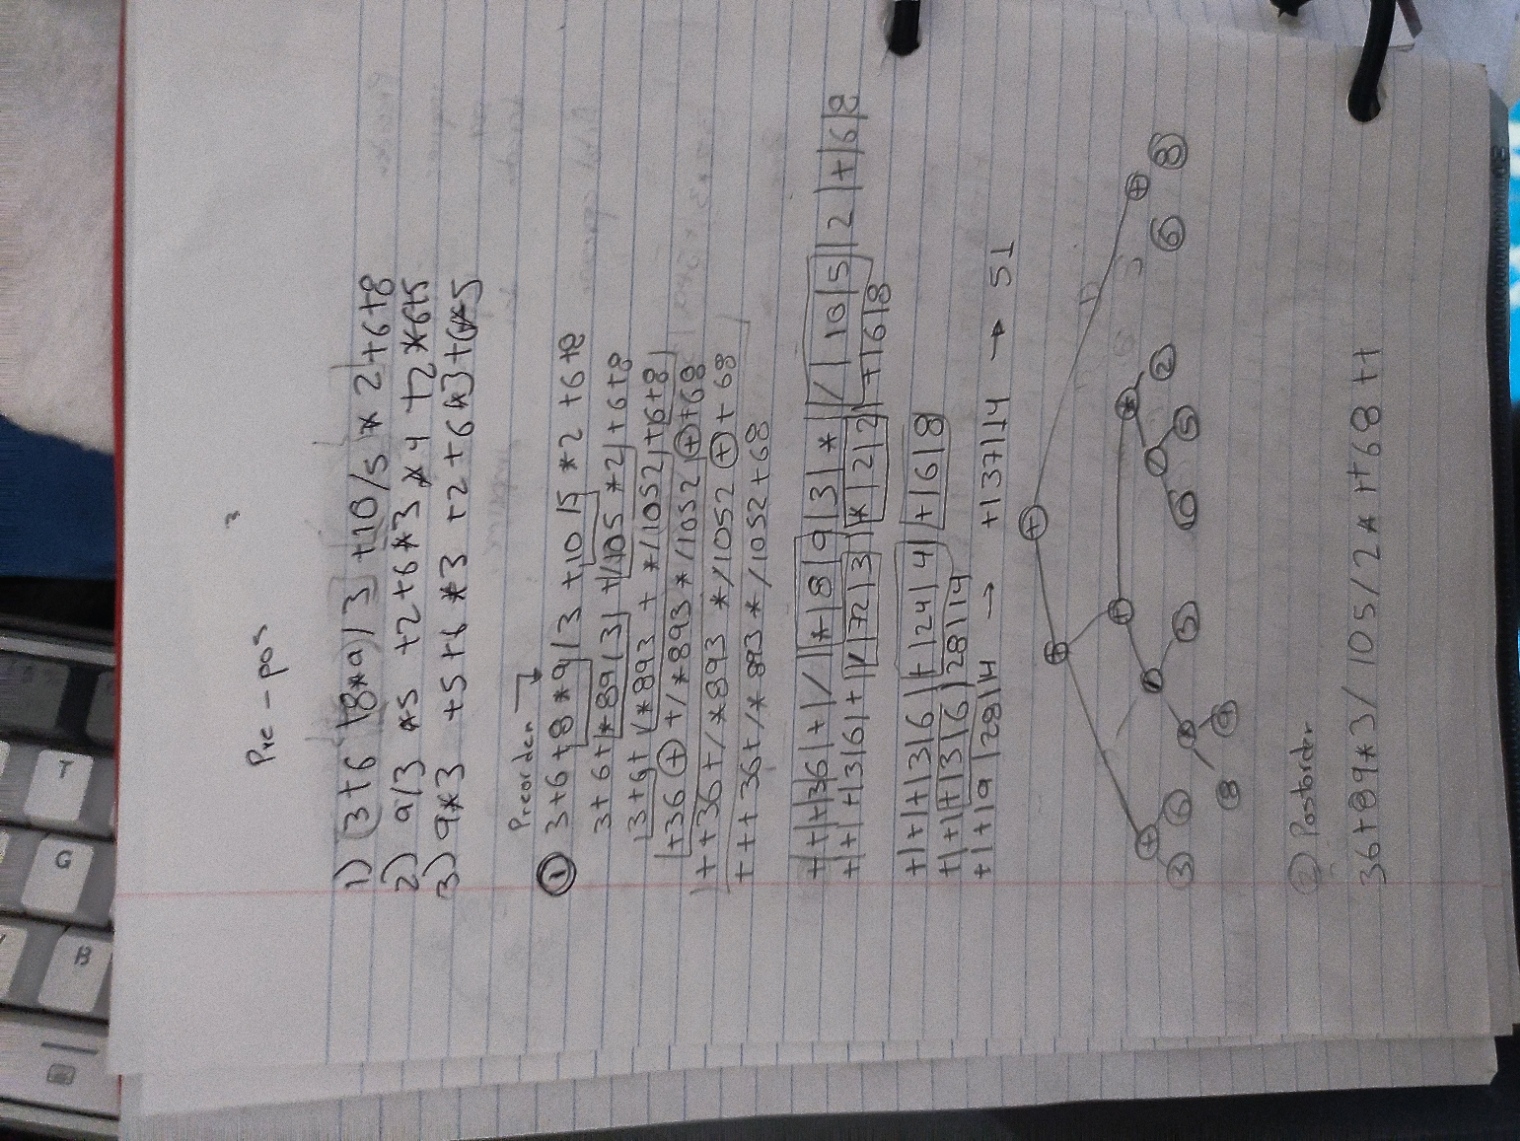 Pre - pos
1) 3+6+8*9/3+10/5*2+6+8
2) 9/3*5+2+6*3*4+2*6+5
3) 9*3+5+6*3+2+6*3+6*5
Preorden
① 3+6+8*9/3+10/5*2+6+8
3+6+*89/3+/105*2+6+8
3+6+/*893+*/1052+6+8
+36⊕+/*893*/1052⊕+68
++36+/*893*/1052⊕+68
+++36+/*893*/1052+68
+|+|+|36|+|/|*|8|9|3|*|/|10|5|2|+|6|8
+|+|+|3|6|+|/|72|3|*|2|2|+|6|8
+|+|+|3|6|+|24|4|+|6|8
+|+|+|3|6|28|14
+|+|9|28|14 → +|37|14 → 51
+
+ +
+ + *
3 6 / 5 / 2 6 8
* 10 5
8 9
② Postorder
36+89*3/105/2*++68++
T
G
B